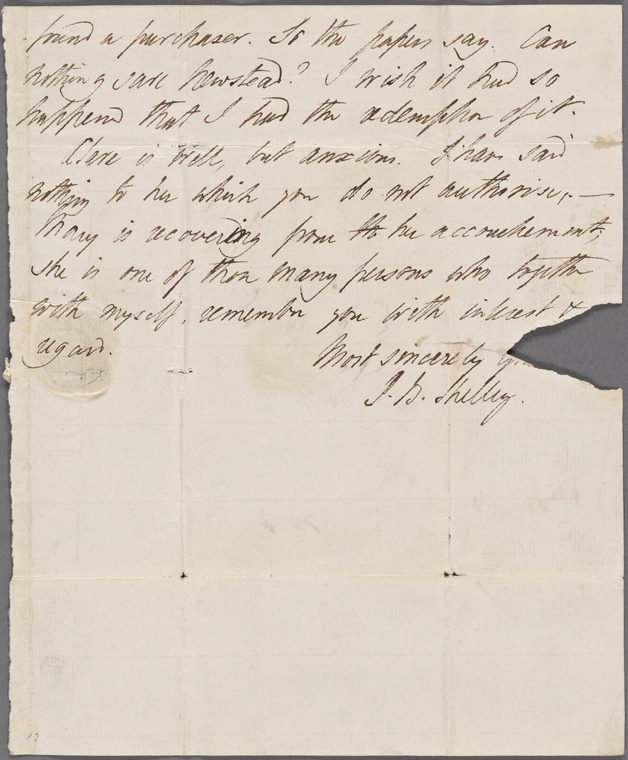 found a purchaser. So the papers say. Can
nothing save Newstead? I wish it had so
happened that I had the redemption of it.
Clare is well, but anxious. I have said
nothing to her which you do not authorise,—
Mary is recovering from her accouchement;
she is one of those many persons who together
with myself, remember you with interest &
regard.
Most sincerely
P. B. Shelley.